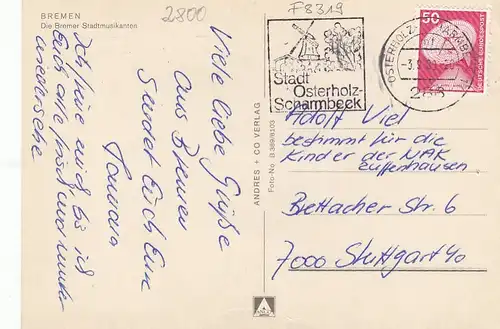 BREMEN
Die Bremer Stadtmusikanten
2800
F8319
Viele liebe Grüße
aus Bremen
Sendet Euch Eure
Tamara
Ich freue mich bis ich
Euch alle gesund und munter
wiedersehe
ANDRES + CO VERLAG
Foto-No
Stadt
Osterholz-
Scharmbeck
OSTERHOLZ-SCHARMBECK
50
DEUTSCHE BUNDESPOST
Adolf Viel
bestimmt für die
Kinder der NAK
Zuffenhausen
Brettacher Str. 6
7000 Stuttgart 40